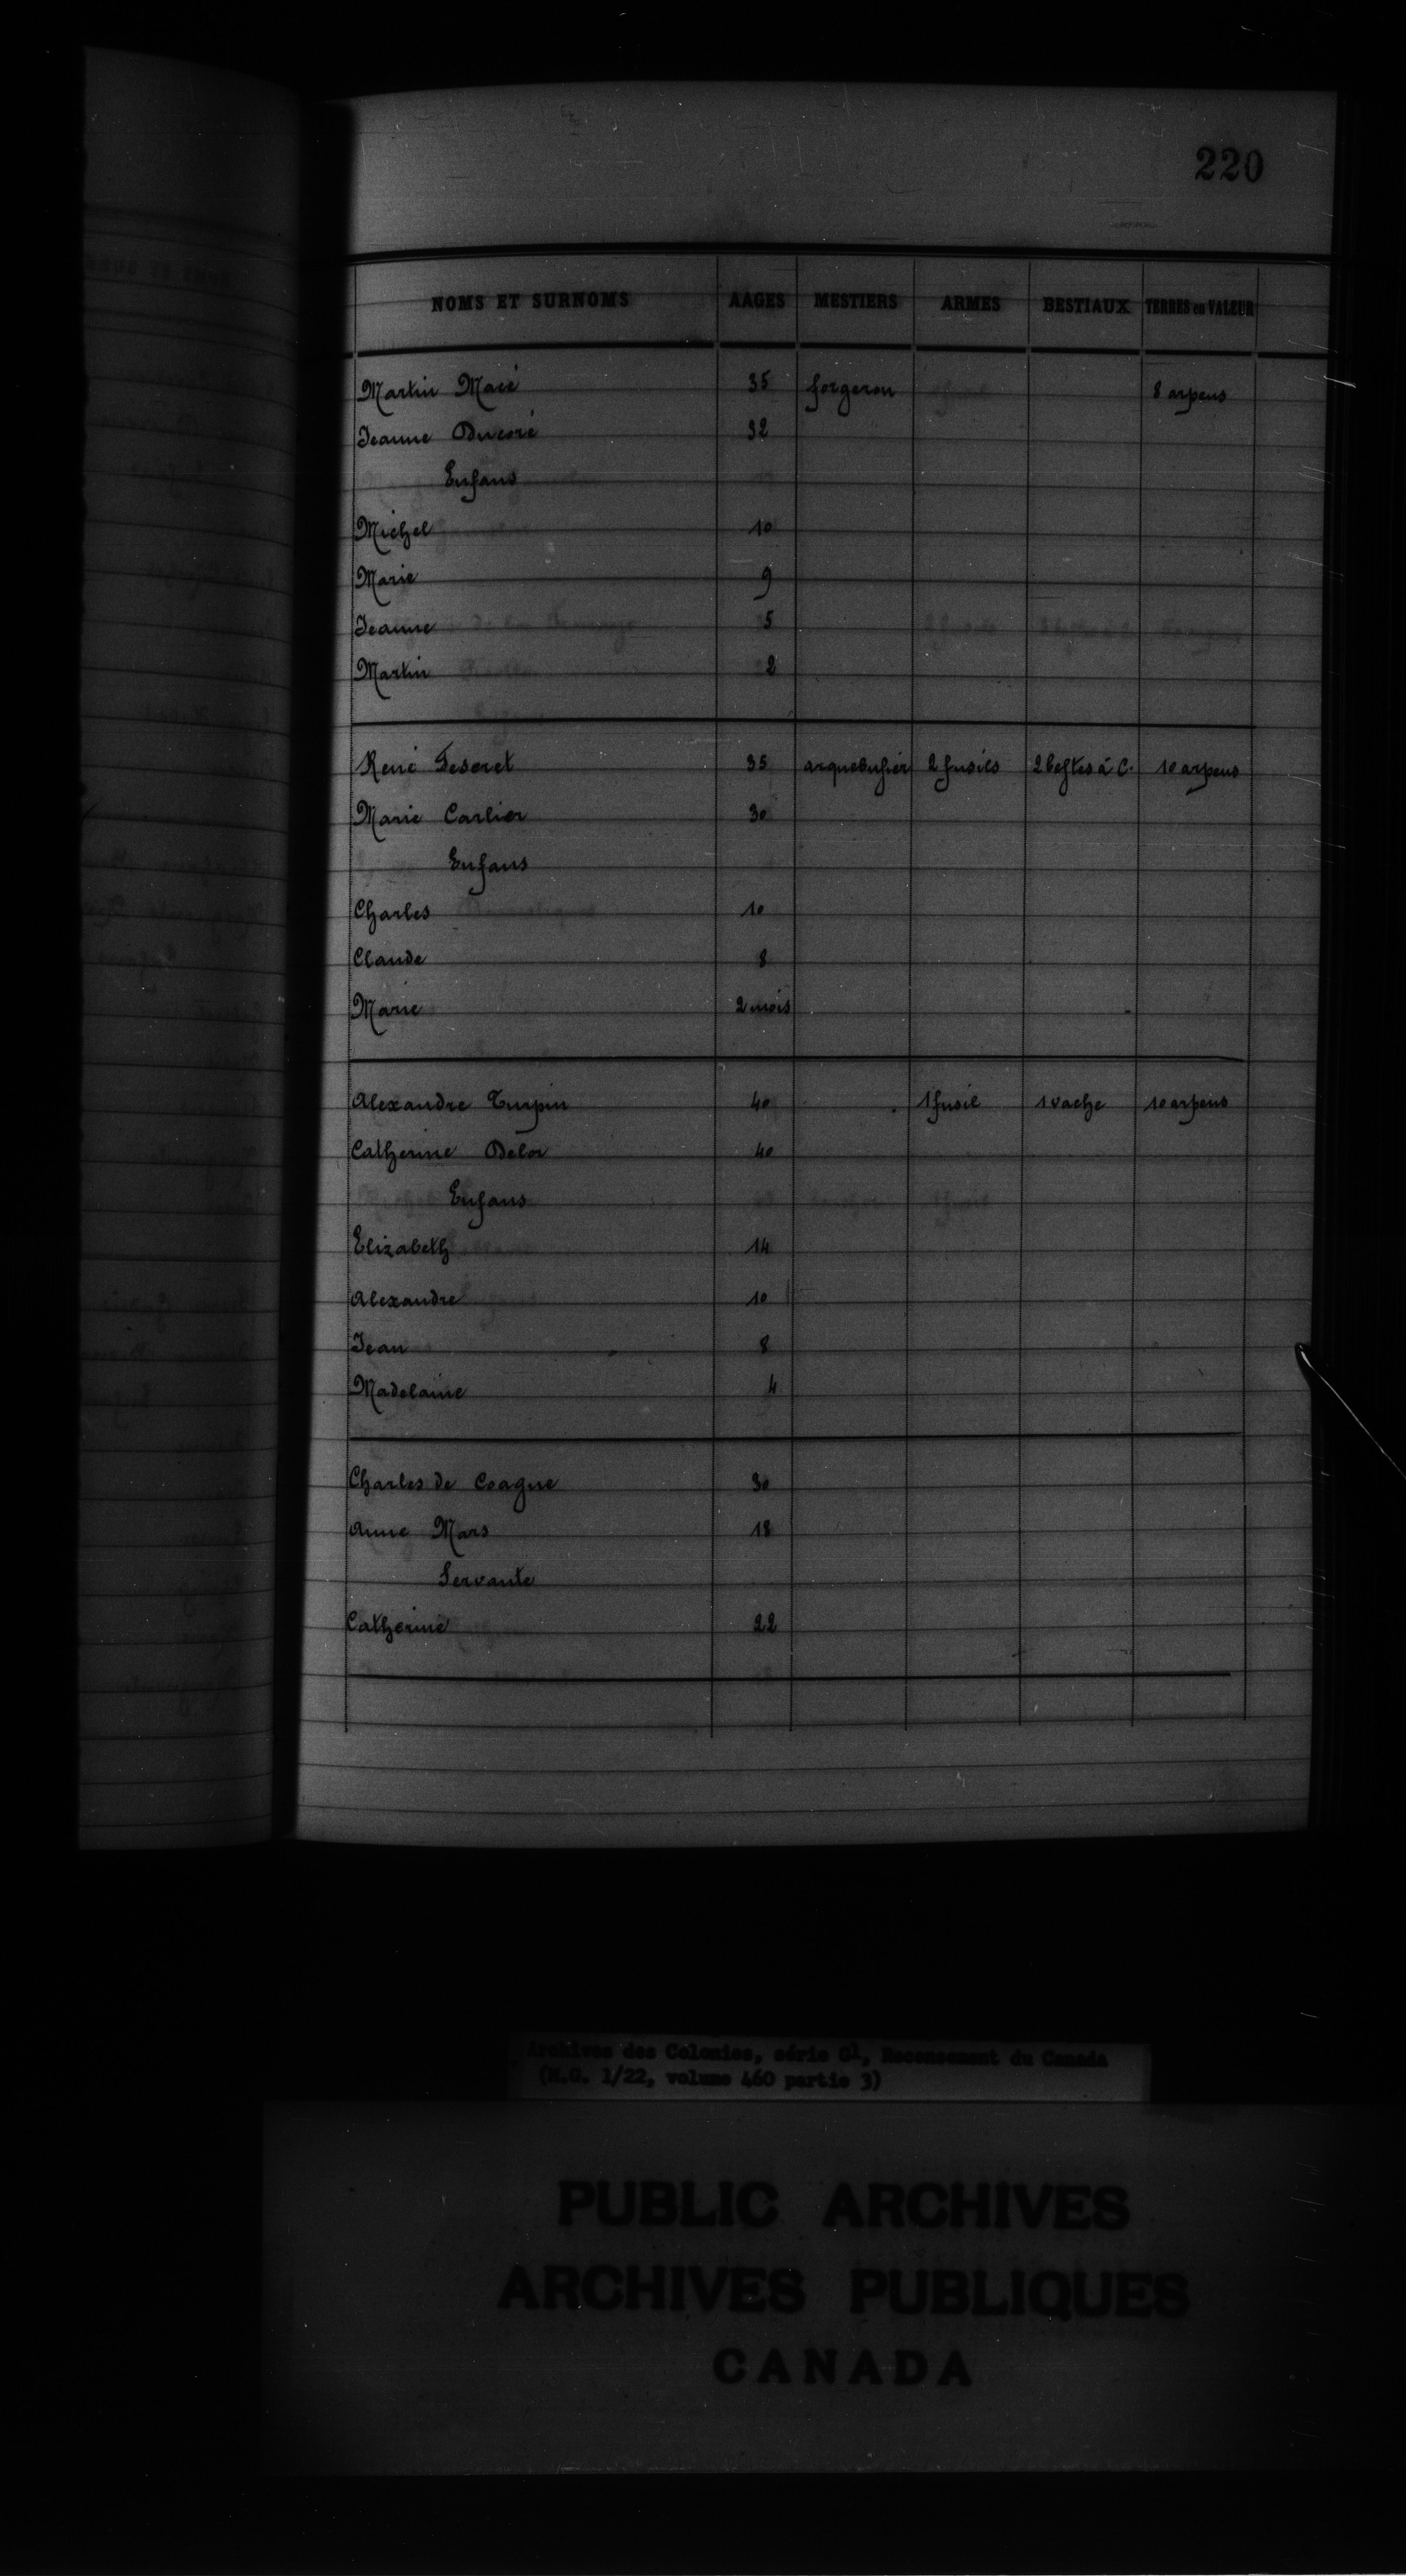 220
NOMS ET SURNOMS AAGES MESTIERS ARMES BESTIAUX TERRES en VALEUR
Martin Macé 35 forgeron 8 arpens
Jeanne Ducoré 32
Enfans
Michel 10
Marie 9
Jeanne 5
Martin 2
René Fesoret 35 arquebusier 2 fusils 2 bestes à C. 10 arpens
Marie Carlier 30
Enfans
Charles 10
Claude 8
Marie 2 mois
Alexandre Turpin 40 1 fusil 1 vache 10 arpens
Catherine Delor 40
Enfans
Elizabeth 14
Alexandre 10
Jean 8
Madelaine 4
Charles de Coague 30
Anne Mars 18
Servante
Catherine 22
Archives des Colonies, série G1, Recensement du Canada
(M.G. 1/22, volume 460 partie 3)
PUBLIC ARCHIVES
ARCHIVES PUBLIQUES
CANADA